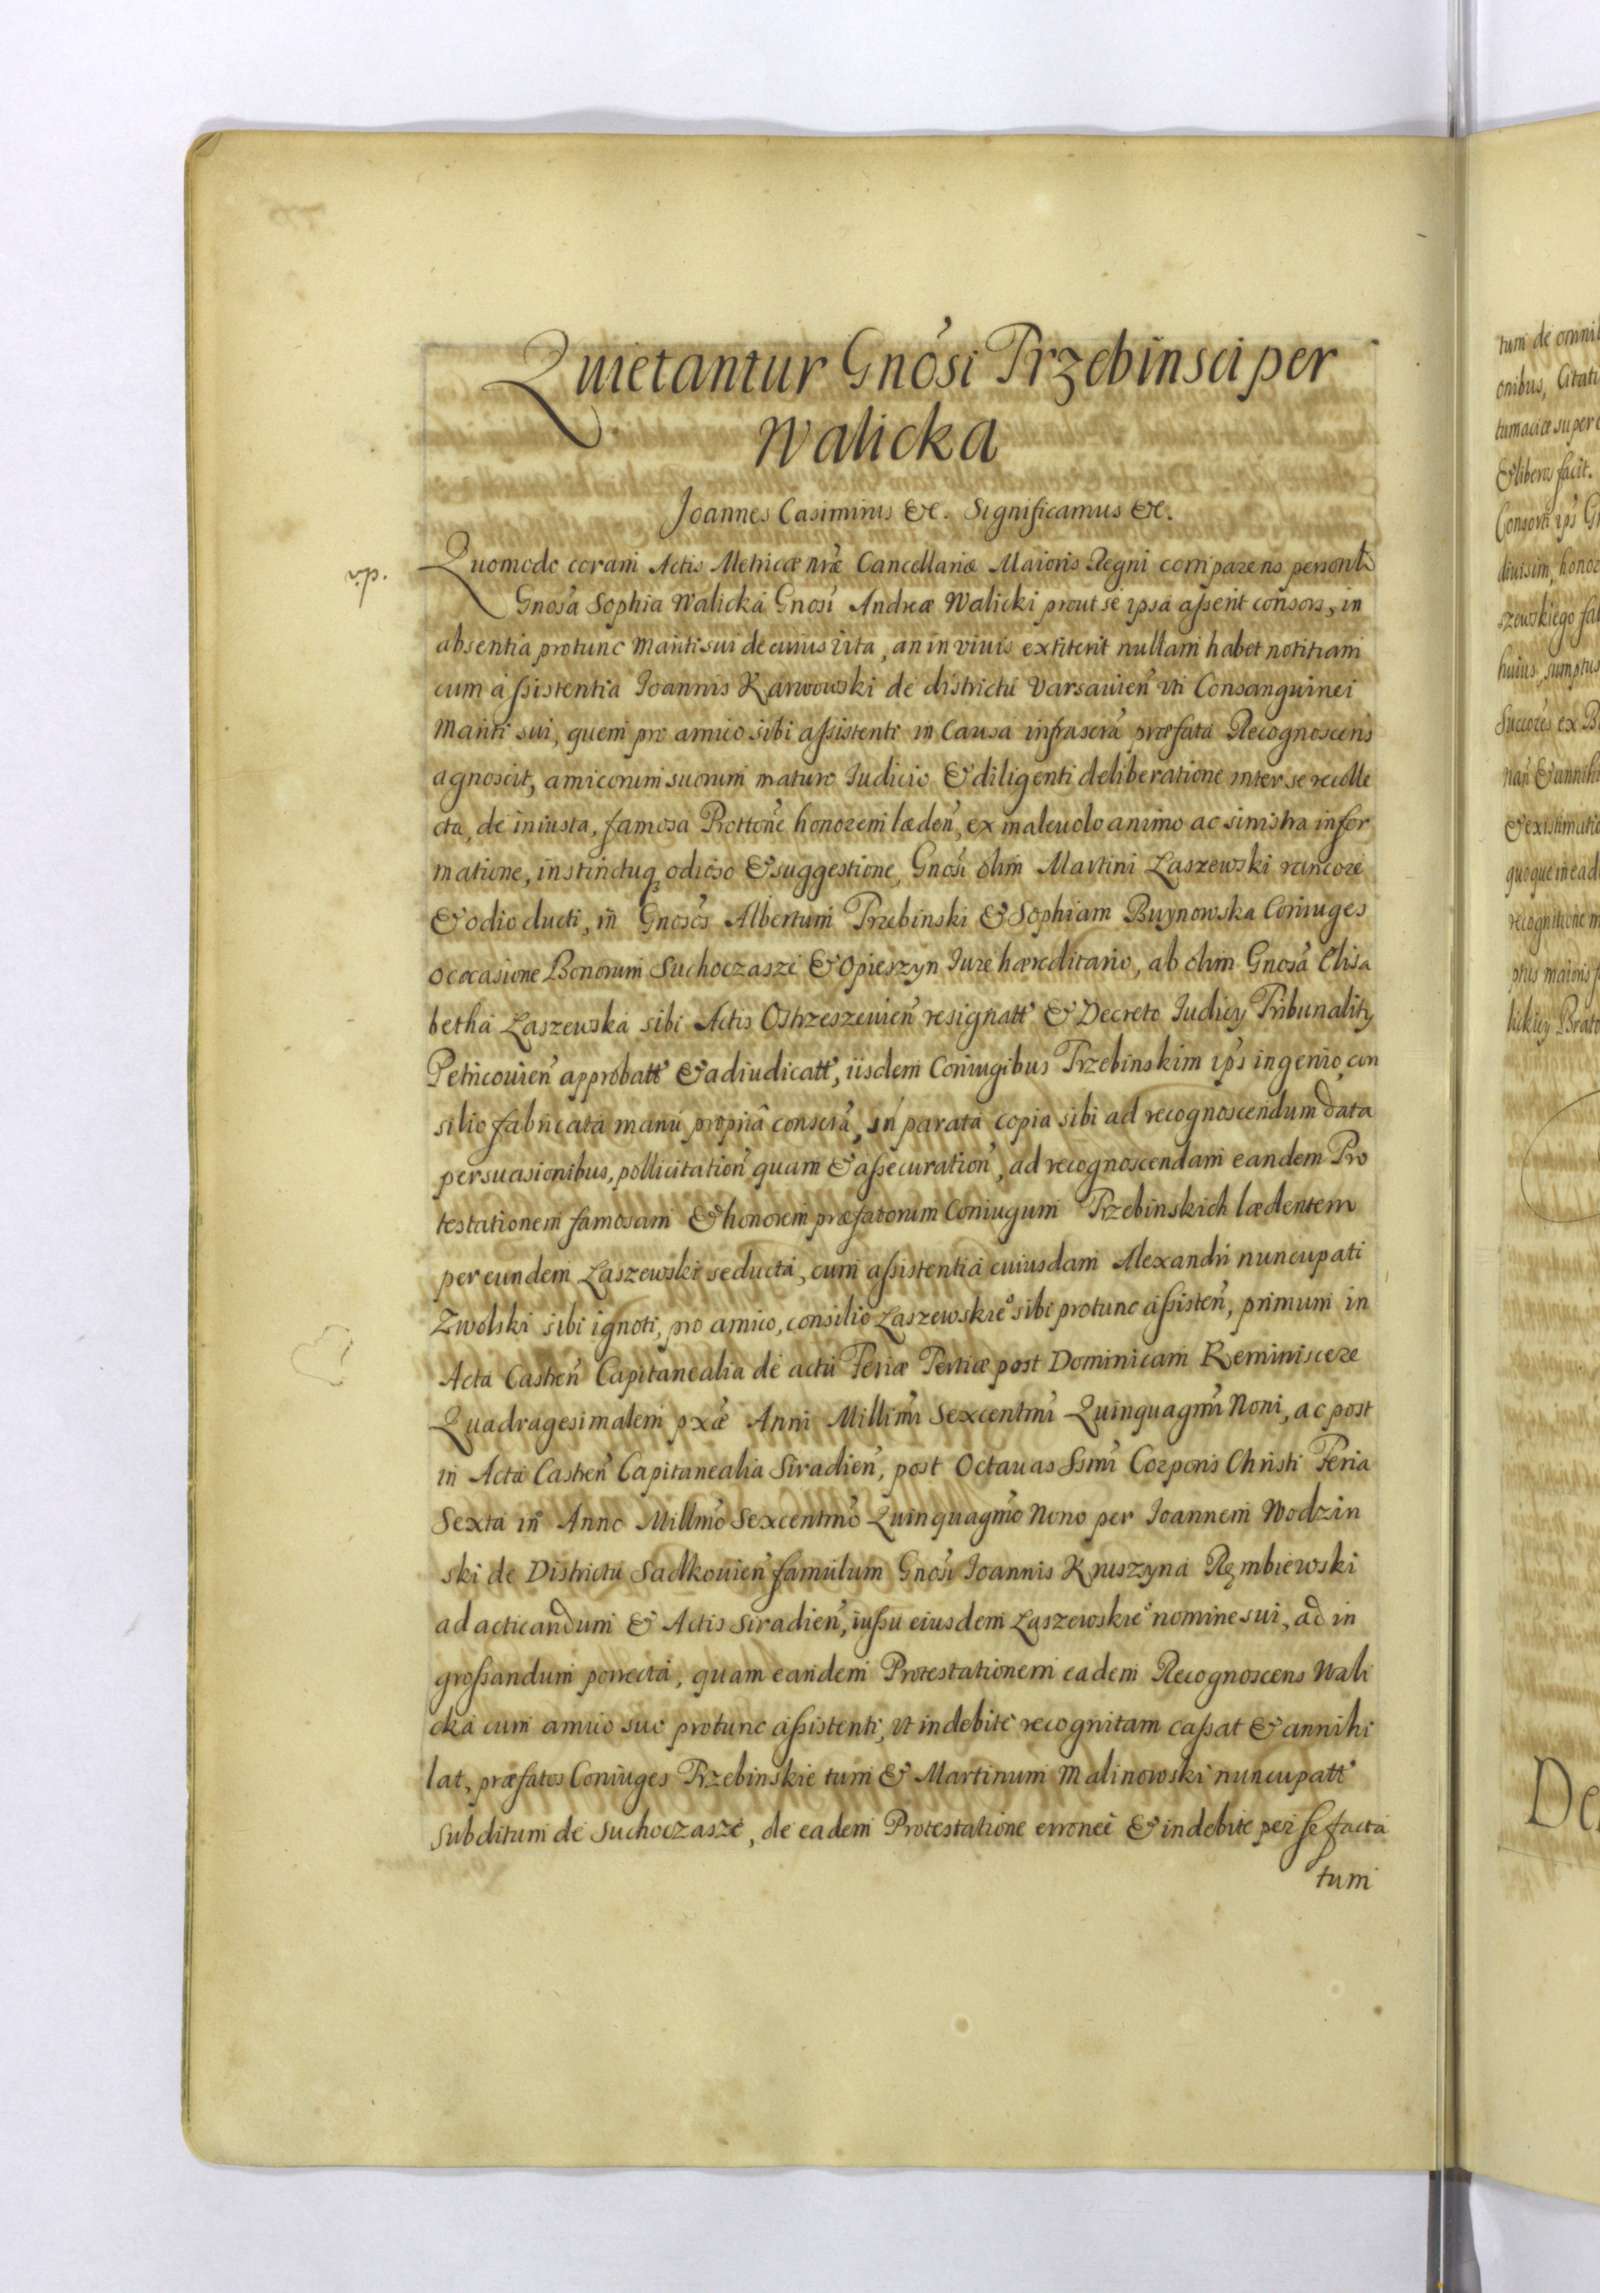 Quietantur Gnosi Przebinsci per
Walicka
Joannes Casimirus &c. Significamus &c.
v.p.
Quomodo coram Actis Metricæ nræ Cancellariæ Maioris Regni comparens personlr
Gnosa Sophia Walicka Gnosi Andreæ Walicki prout se ipsa asserit consors, in
absentia protunc Mariti sui de cuius vita, an in viuis extiterit nullam habet notitiam
cum assistentia Joannis Karwowski de districtu Varsauien uti Consanguinei
Mariti sui, quem pro amico sibi assistenti in Causa infrascra præfata Recognoscens
agnoscit, amicorum suorum maturo Iudicio & diligenti deliberatione inter se recolle
cta, de iniusta, famosa Prottone honorem læden, ex maleuolo animo ac sinistra infor
matione, instinctuq odioso & suggestione, Gnosi olim Martini Laszewski rancore
& odio ducti, in Gnosos Albertum Przebinski & Sophiam Buynowska Coniuges
occasione Bonorum Suchoczasze & Opieszyn Iure hæreditario, ab olim Gnosa Elisa
betha Laszewska sibi Actis Ostrzeszeuien resignatt & Decreto Iudicy Tribunality
Petricouien approbatt & adiudicatt, iisdem Coniugibus Przebinskim ips ingenio, con
silio fabricata manu propria conscra, in parata copia sibi ad recognoscendum data
persuasionibus, pollicitation quam & assecuration, ad recognoscendam eandem Pro
testationem famosam & honorem præfatorum Coniugum Przebinskich lædentem
per eundem Laszewski seducta, cum assistentia cuiusdam Alexandri nuncupati
Zwolski sibi ignoti, pro amico, consilio Laszewskieo sibi protunc assisten, primum in
Acta Castren Capitanealia de actu Feriæ Tertiæ post Dominicam Reminiscere
Quadragesimalem pxæ Anni Millimi Sexcentmi Quinquagmi Noni, ac post
in Acta Castren Capitanealia Siradien, post Octauas Ssmi Corporis Christi Feria
Sexta in Anno Millmo Sexcentmo Quinquagmo Nono per Joannem Wodzin
ski de Districtu Sadkouien famulum Gnosi Joannis Kruszyna Rembiewski
ad acticandum & Actis Siradien, iussu eiusdem Laszewskieo nomine sui, ad in
grossandum porrecta, quam eandem Protestationem eadem Recognoscens Wali
cka cum amico suo protunc assistenti, ut indebite recognitam cassat & annihi
lat, præfatos Coniuges Przebinskie tum & Martinum Malinowski nuncupatt
subditum de Suchoczasze, de eadem Protestatione erronee & indebite per se facta
tum
tum de omnib
onibus, Citati
tumaciæ super
& liberos facit.
Consorti ips
diuisim, honor
szewskiego fal
huius, sumptus
Succores ex B
& annihi
& existimatio
quoque in ead
recognitione m
lickiey Brato
De